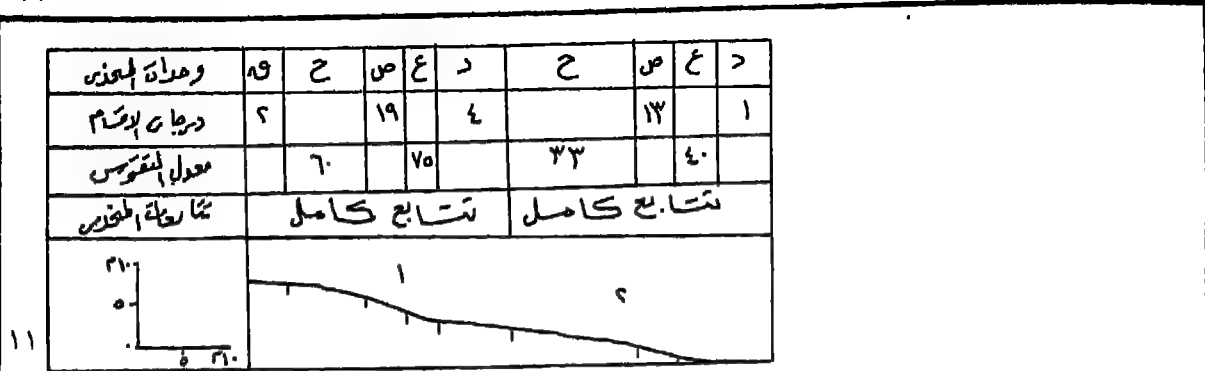 وحدات المنحدر ق ح ص ع د ح ص ع د
درجات الاقسام ٢ ١٩ ٤ ١٣ ١
معدل التقوس ٦٠ ٧٥ ٣٣ ٤٠
تتابعات المنحدر تتابع كامل تتابع كامل
١٠م ١
٥ ٢
٠
٥ ١٠م
١١